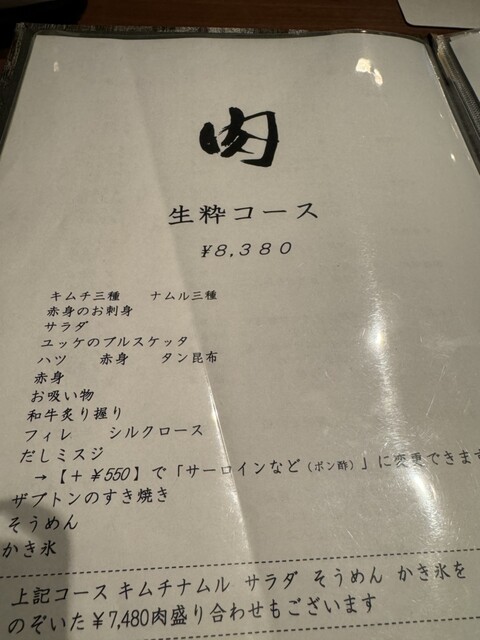 肉
生粋コース
¥8,380
キムチ三種　ナムル三種
赤身のお刺身
サラダ
ユッケのブルスケッタ
ハツ　赤身　タン昆布
赤身
お吸い物
和牛炙り握り
フィレ　シルクロース
だしミスジ
→【＋¥550】で「サーロインなど(ポン酢)」に変更できます
ザブトンのすき焼き
そうめん
かき氷
上記コース キムチナムル サラダ そうめん かき氷を
のぞいた¥7,480肉盛り合わせもございます